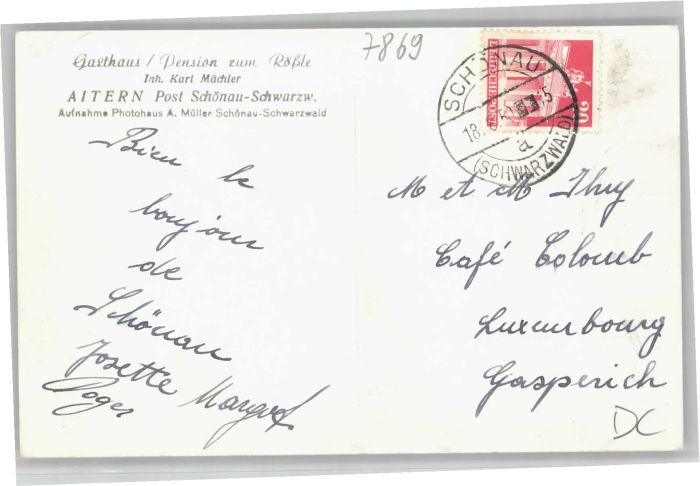 Gasthaus / Pension zum Rößle
Inh. Karl Mächler
AITERN Post Schönau-Schwarzw.
Aufnahme Photohaus A. Müller Schönau-Schwarzwald
7869
DEUTSCHE POST
SCHÖNAU
18.
a
(SCHWARZWALD)
Bien le
bonjour
de
Schönau
Josette Margot
Roger
M et M Thuy
Café Colomb
Luxembourg
Gasperich
DC